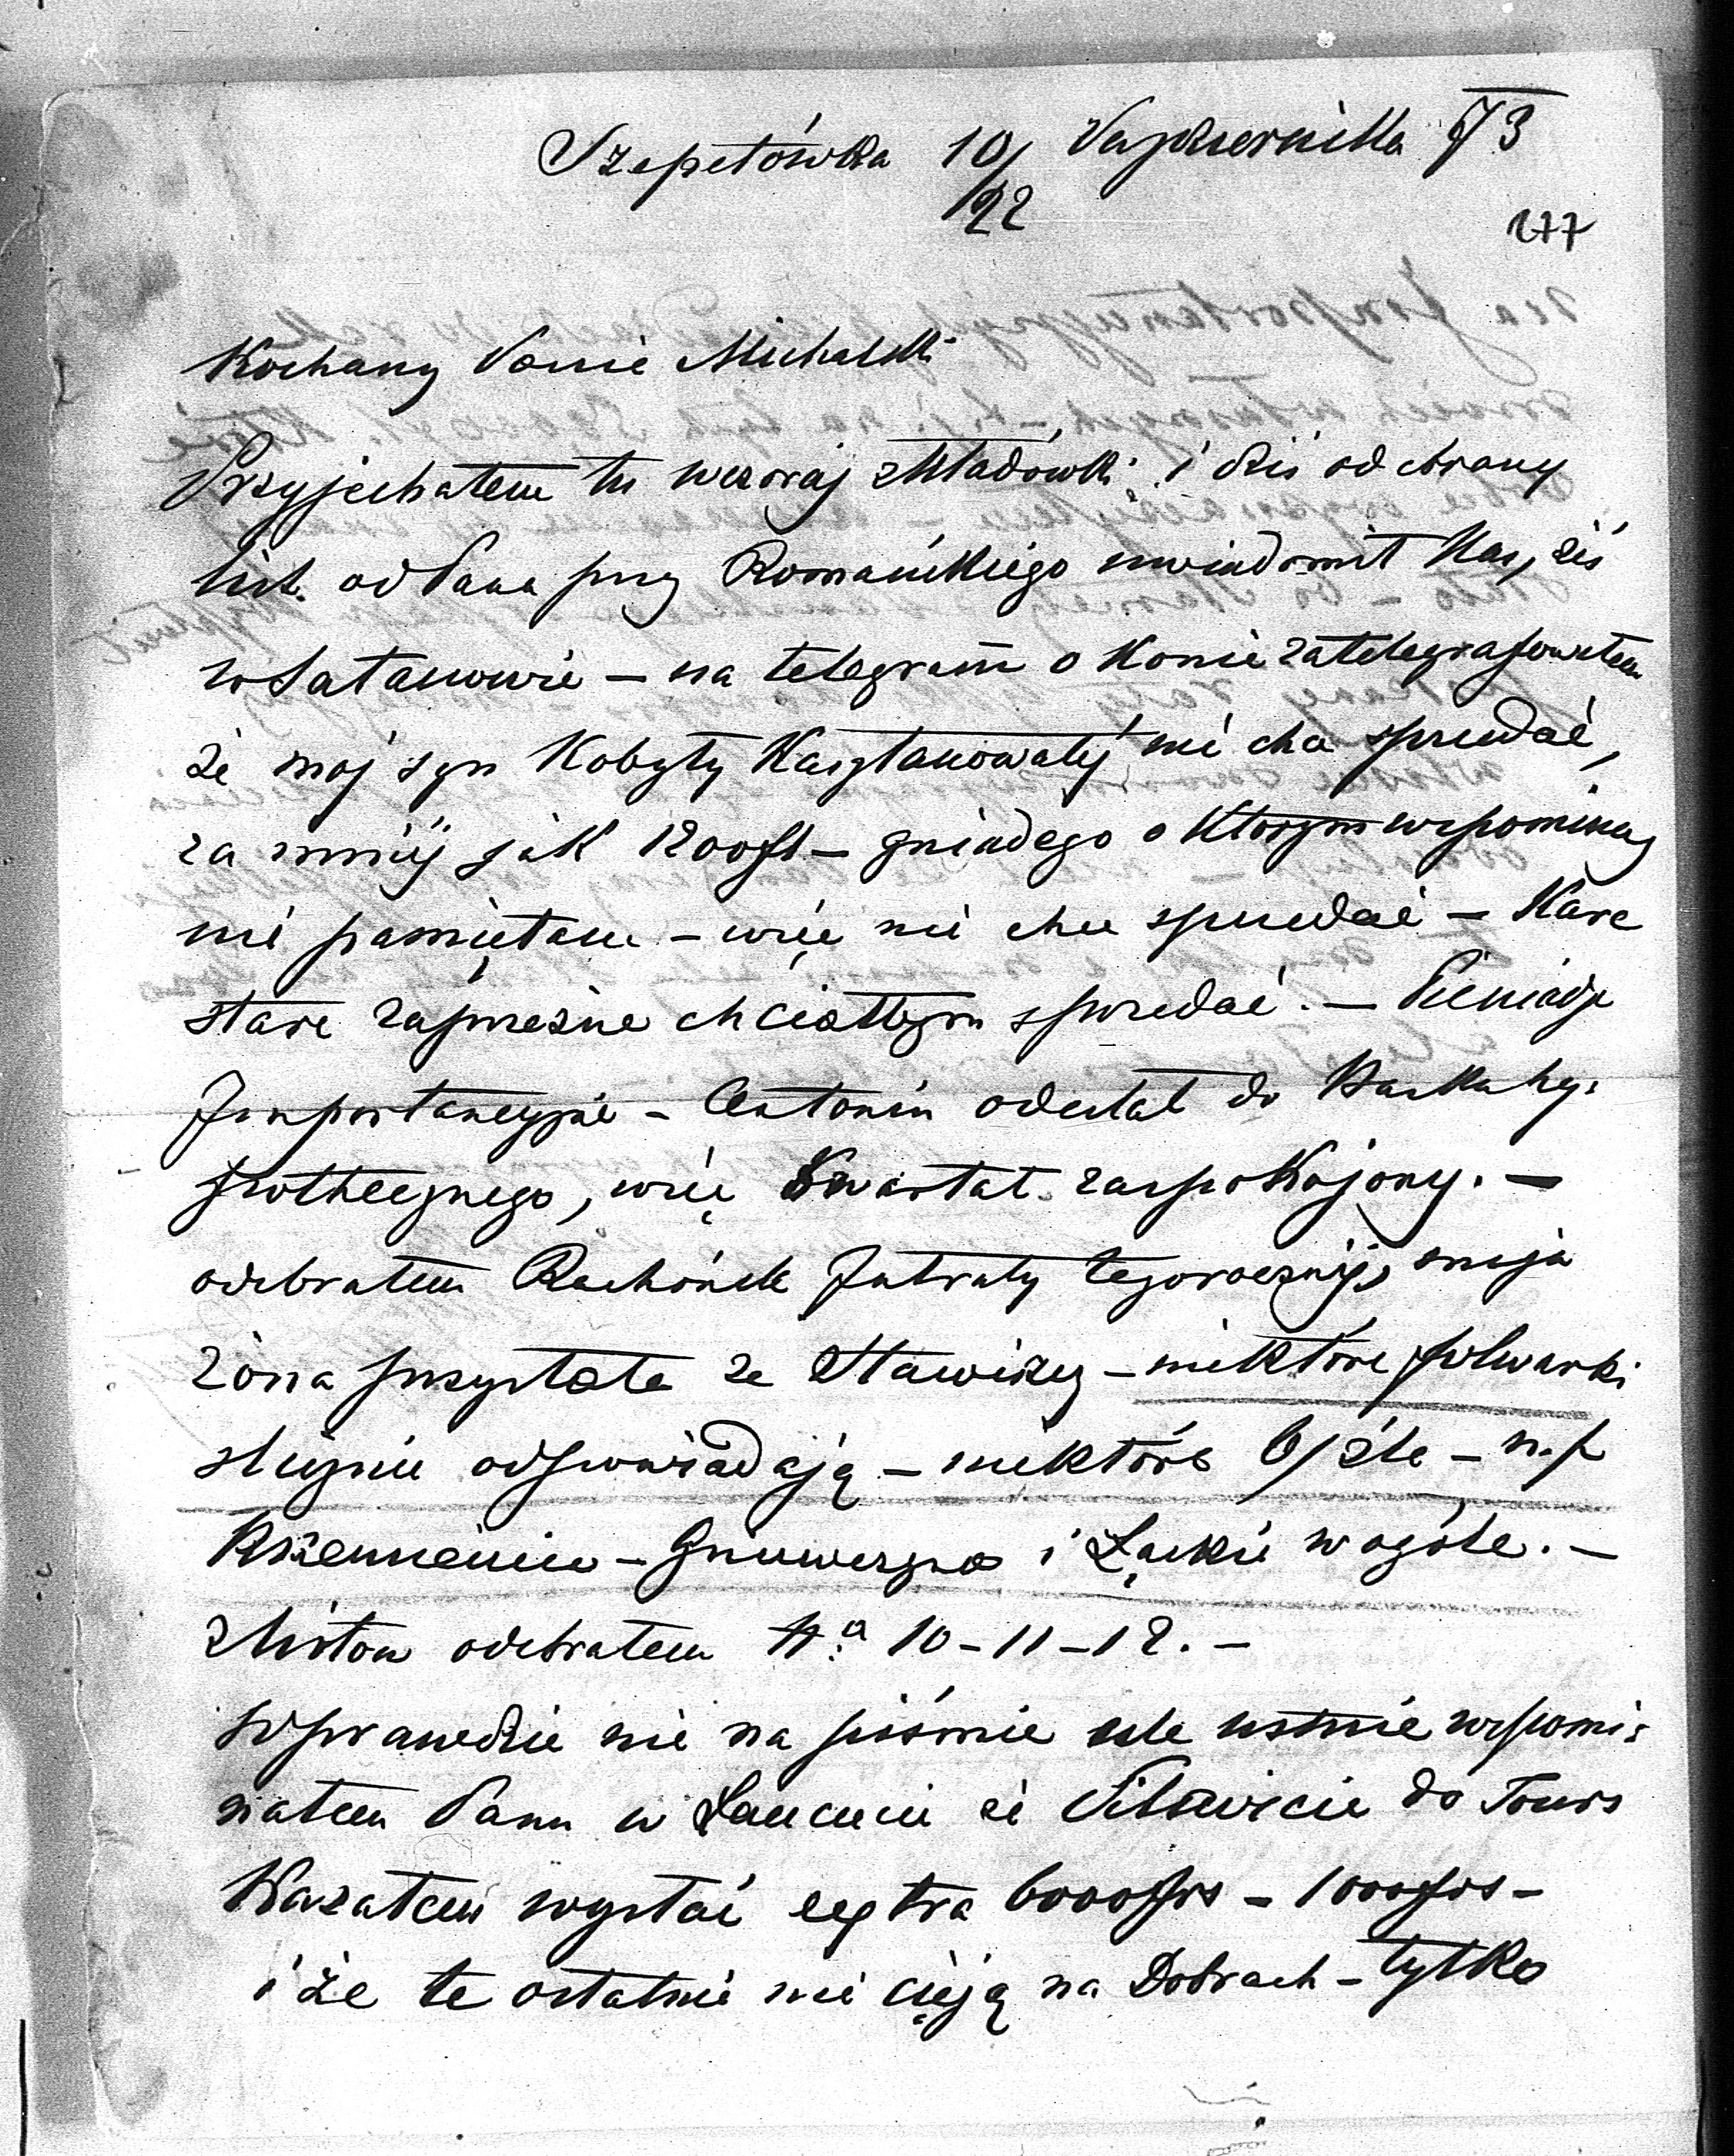 Szepetówka 10/22 Października 73
277
Kochany Panie Michalski
Przyjechałem tu wczoraj z Kładówki i dziś odebrany
list od Pana przy Romańskiego uwiadomił Nas, żeś
w Satanowie – na telegram o Konie zatelegrafowałem
że mój syn Kobyły Kasztanowatej nie chce sprzedać,
za mniej jak 1200 fl – gniadego o Którym wspominasz
nie pamiętam – więc nie chcę sprzedać – Kare
stare zaprzężne chciałbym sprzedać. – Pieniądze
Importancyjne – Antonin odesłał do Banku hy-
pothecznego, więc Kwartał zaspokojony. –
odebrałem Rachónek Intraty tegorocznej, moja
żona przysłała ze Stawiszcz – niektóre folwarki
ślicznie odpowiadają – niektóre b/źle – n.p
Krzemienica – Gniewczyna i Łąckie w ogóle. –
Listów odebrałem No 10 – 11 – 12. –
wprawdzie nie na piśmie ale ustnie wspomi-
nałem Panu w Łańcucie że do Tours
Kazałem wysłać extra 6000 frs – 1000 frs –
i że te ostatnie nie ciążą na Dobrach – tylko